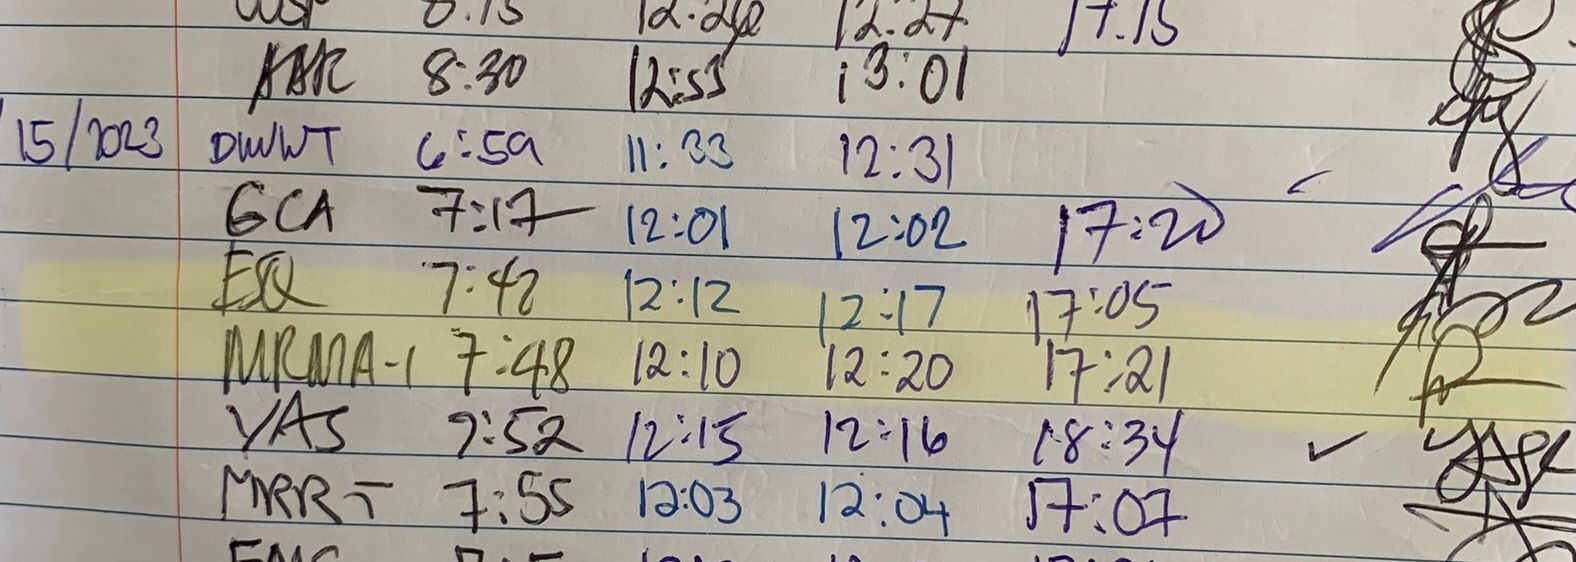 8.15 12.26 12.27 17.15
AAR 8:30 12:53 13:01
15/2023 DWWT 6:59 11:33 12:31
GCA 7:17 12:01 12:02 17:20
ESQ 7:42 12:12 12:17 17:05
MRMA-1 7:48 12:10 12:20 17:21
YAS 7:52 12:15 12:16 18:34
MRRT 7:55 12:03 12:04 17:07